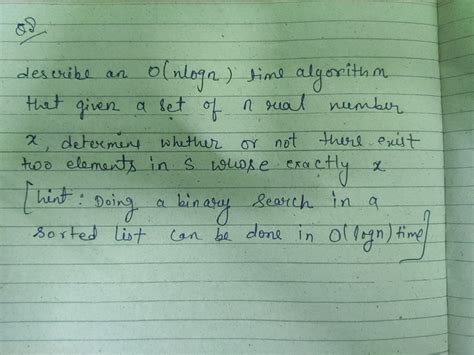 Q5
describe an O(nlogn) time algorithm
that given a set of n real number
x, determine whether or not there exist
two elements in S whose exactly x
[hint: Doing a binary search in a
sorted list can be done in O(logn) time]